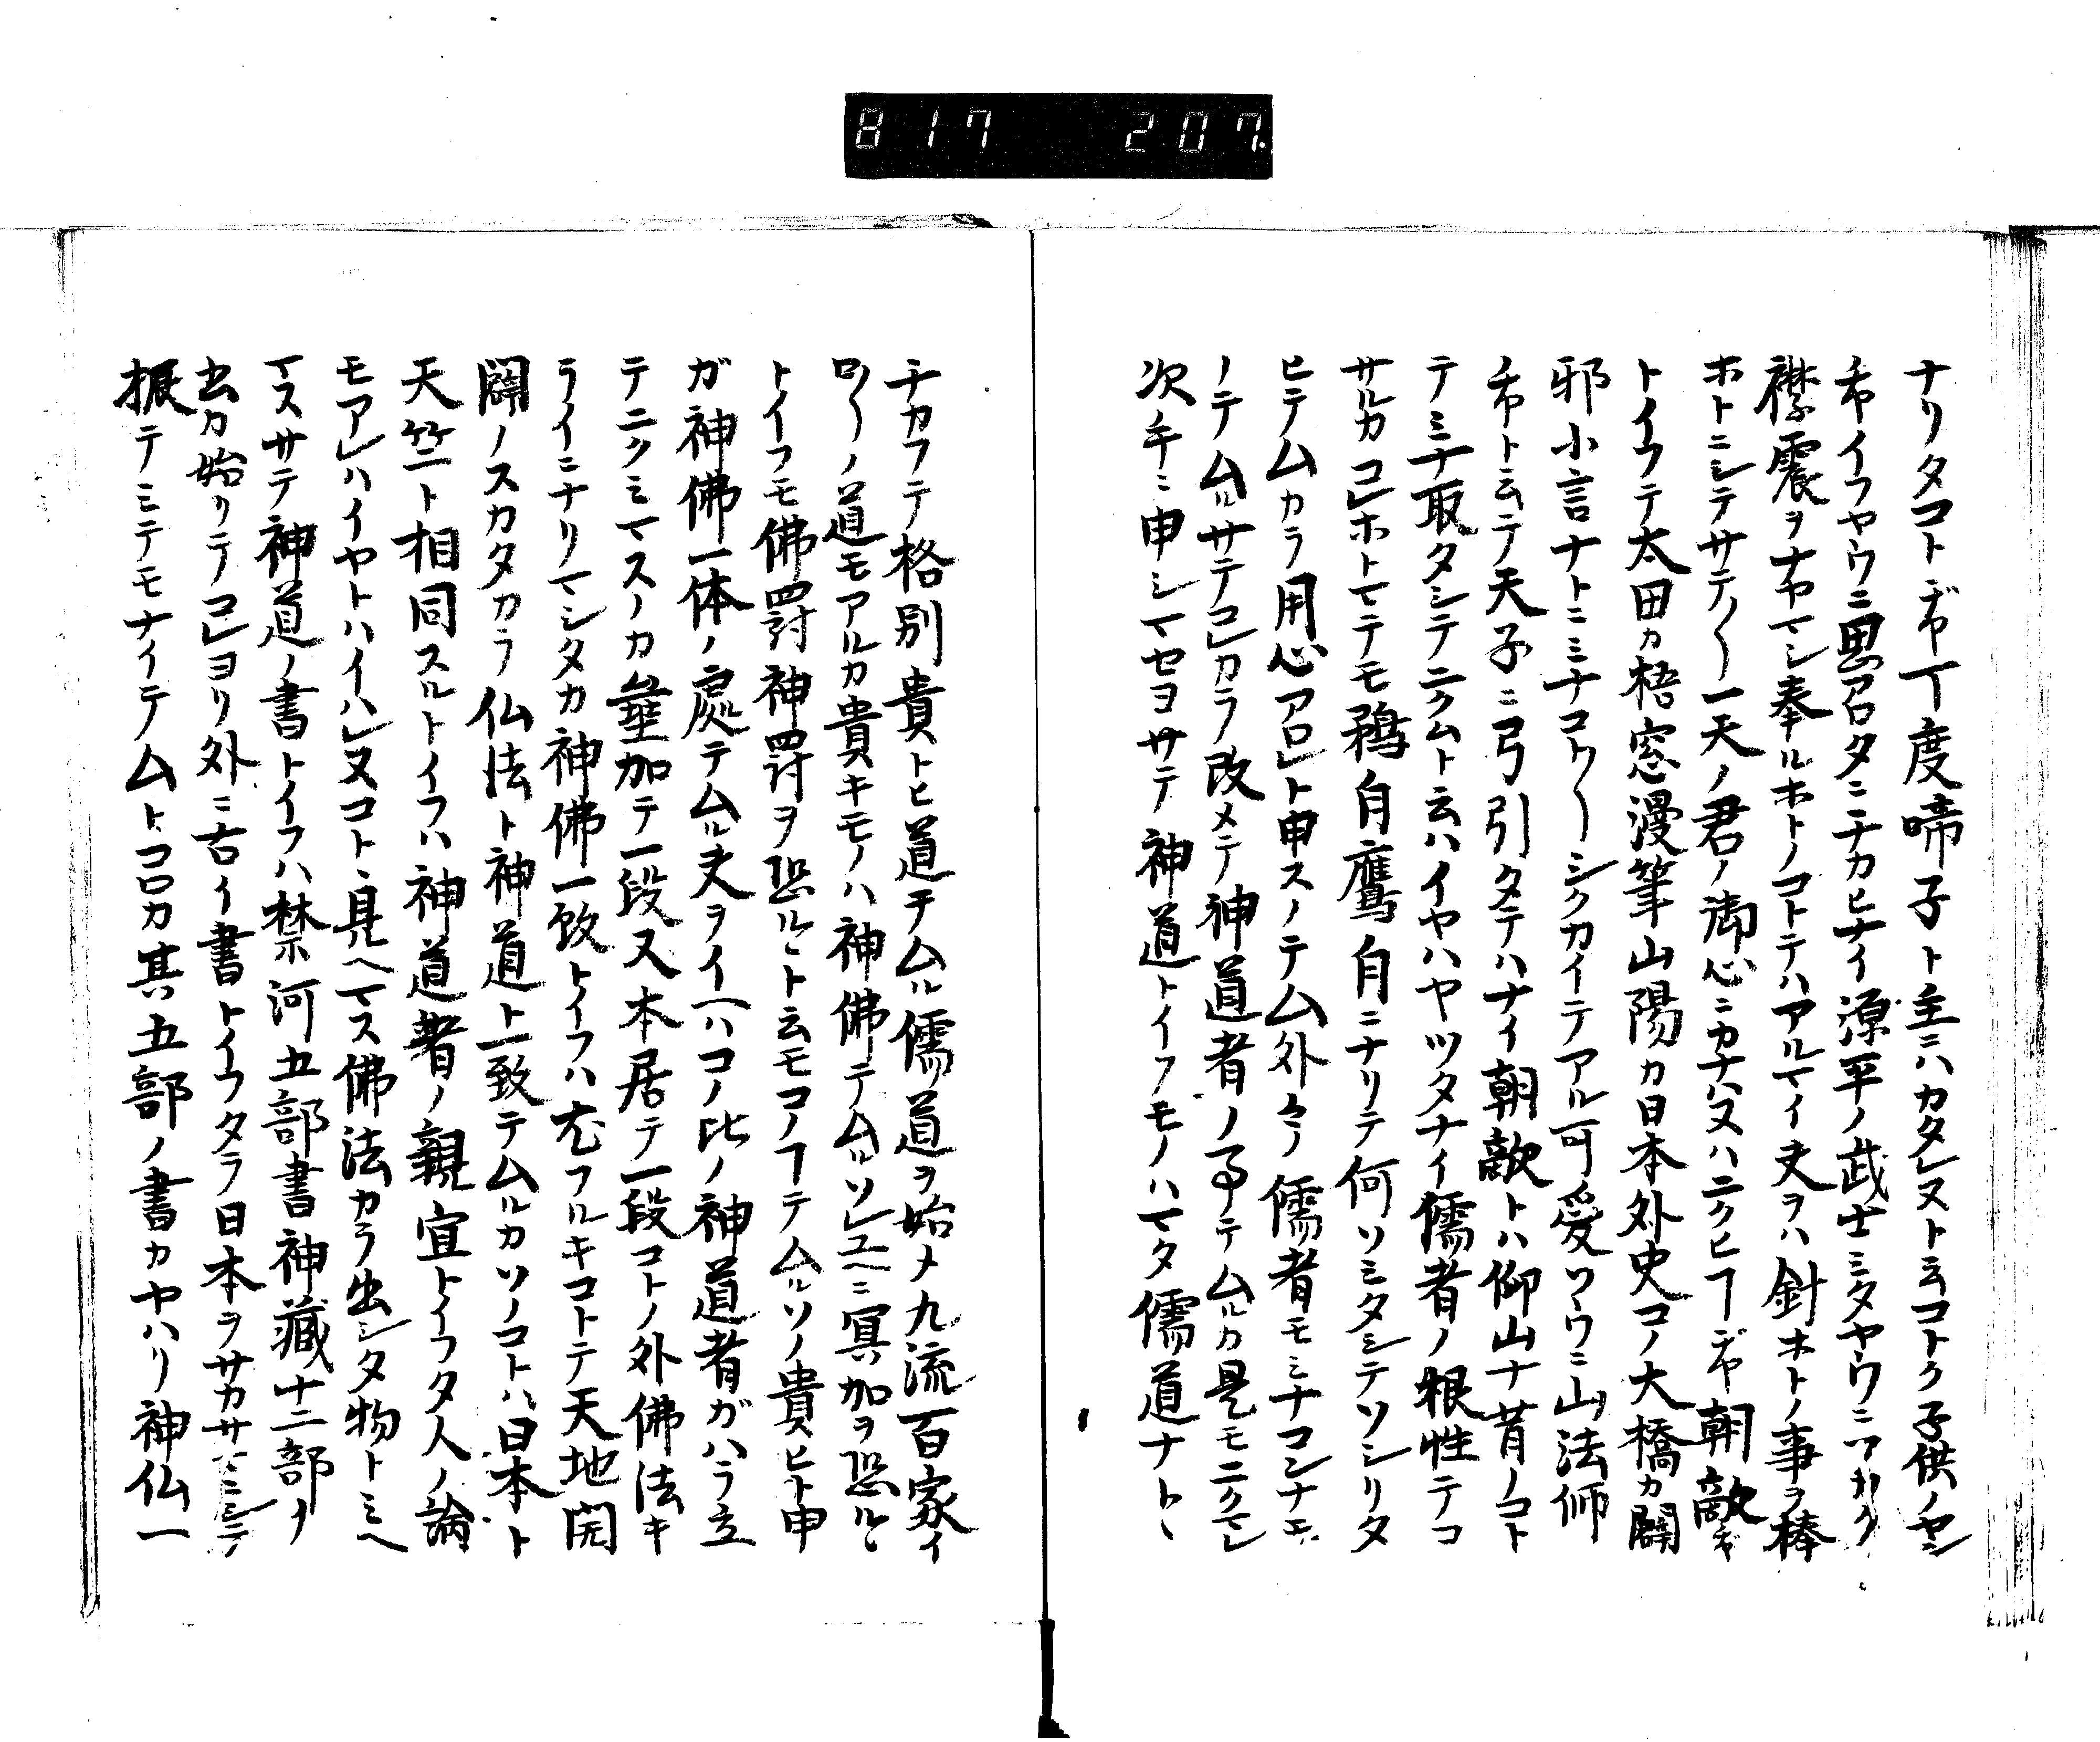 817 207.
ナリタコトヂヤ丁度啼子ト主ニハカタレヌト云コトク子供ノヤシ
希イフヤウニ思召タニチカヒナイ源平ノ武士ミタヤウニ
襟震ヲナヤマシ奉ルホトノコトテハアルマイ夫ヲハ針ホトノ事ヲ棒
ホトニシテサテ〱一天ノ君ノ御心ニカナハヌハニクヒ丁ヂヤ朝敵ヂヤ
トイフテ太田カ梧窓漫筆山陽カ日本外史コノ大橋カ闢
邪小言ナトニミナコワ〱シクカイテアル可愛ソウニ山法師
チヤト云テ天子ニ弓引タテハナイ朝敵トハ仰山ナ昔ノコト
テミナ取タシテニクムト云ハイヤハヤツタナイ儒者ノ根性テコ
サルカコレホトマテモ鵜自鷹自ニナリテ何ソミタシテソシリタ
ヒテムカラ用心アロレト申スノテム外々ノ儒者モミナコンナモ
ノテムルサテコレカラ改メテ神道者ノ事テムルカ是モニクマレ
次手ニ申シマセヨサテ神道トイフモノハマタ儒道ナトヽ
チカフテ格別貴トヒ道テムル儒道ヲ始メ九流百家イ
ロ〱ノ道モアルカ貴キモノハ神佛テムルソレユヘニ冥加ヲ恐ルヽ
トイフモ佛罰神罰ヲ恐ルヽト云モコノ丁テムルソノ貴ヒト申
ガ神佛一体ノ處テムル夫ヲイヘハコノ比ノ神道者ガハラ立
テニクミマスノカ垂加テ一段又本居テ一段コトノ外佛法キ
ライニナリマシタカ神佛一致トイフハ尤フルキコトテ天地開
闢ノスカタカラ仏法ト神道ト一致テムルカソノコトハ日本ト
天竺ト相同スルトイフハ神道者ノ親宣トイフタ人ノ論
モアレハイヤトハイハレヌコトヽ見ヘマス佛法カラ出シタ物トミヘ
マスサテ神道ノ書トイフハ禁河五部書神藏十二部ノ
書カ始リテコレヨリ外ニ古イ書トイフタラ日本ヲサカサマニシテ
振テミテモナイテムトコロカ其五部ノ書カヤハリ神仏一